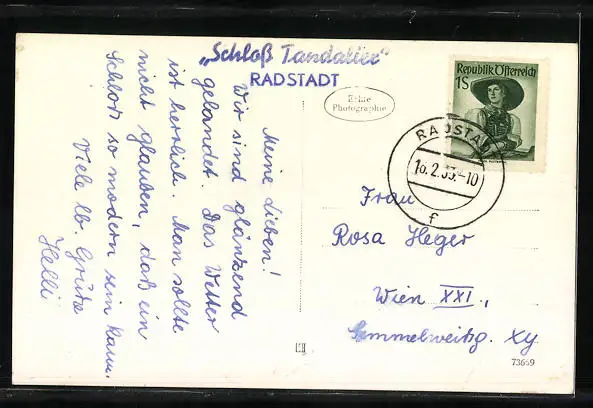 „Schloß Tandalier"
RADSTADT
Echte
Photographie
Republik Österreich
1S
RADSTADT
16.2.53.-10
f
Meine Lieben!
Wir sind glänzend
gelandet. Das Wetter
ist herrlich. Man sollte
nicht glauben, daß ein
Schloß so modern sein kann.
Viele lb. Grüße
Helli
Frau
Rosa Heger
Wien XXI.,
73669